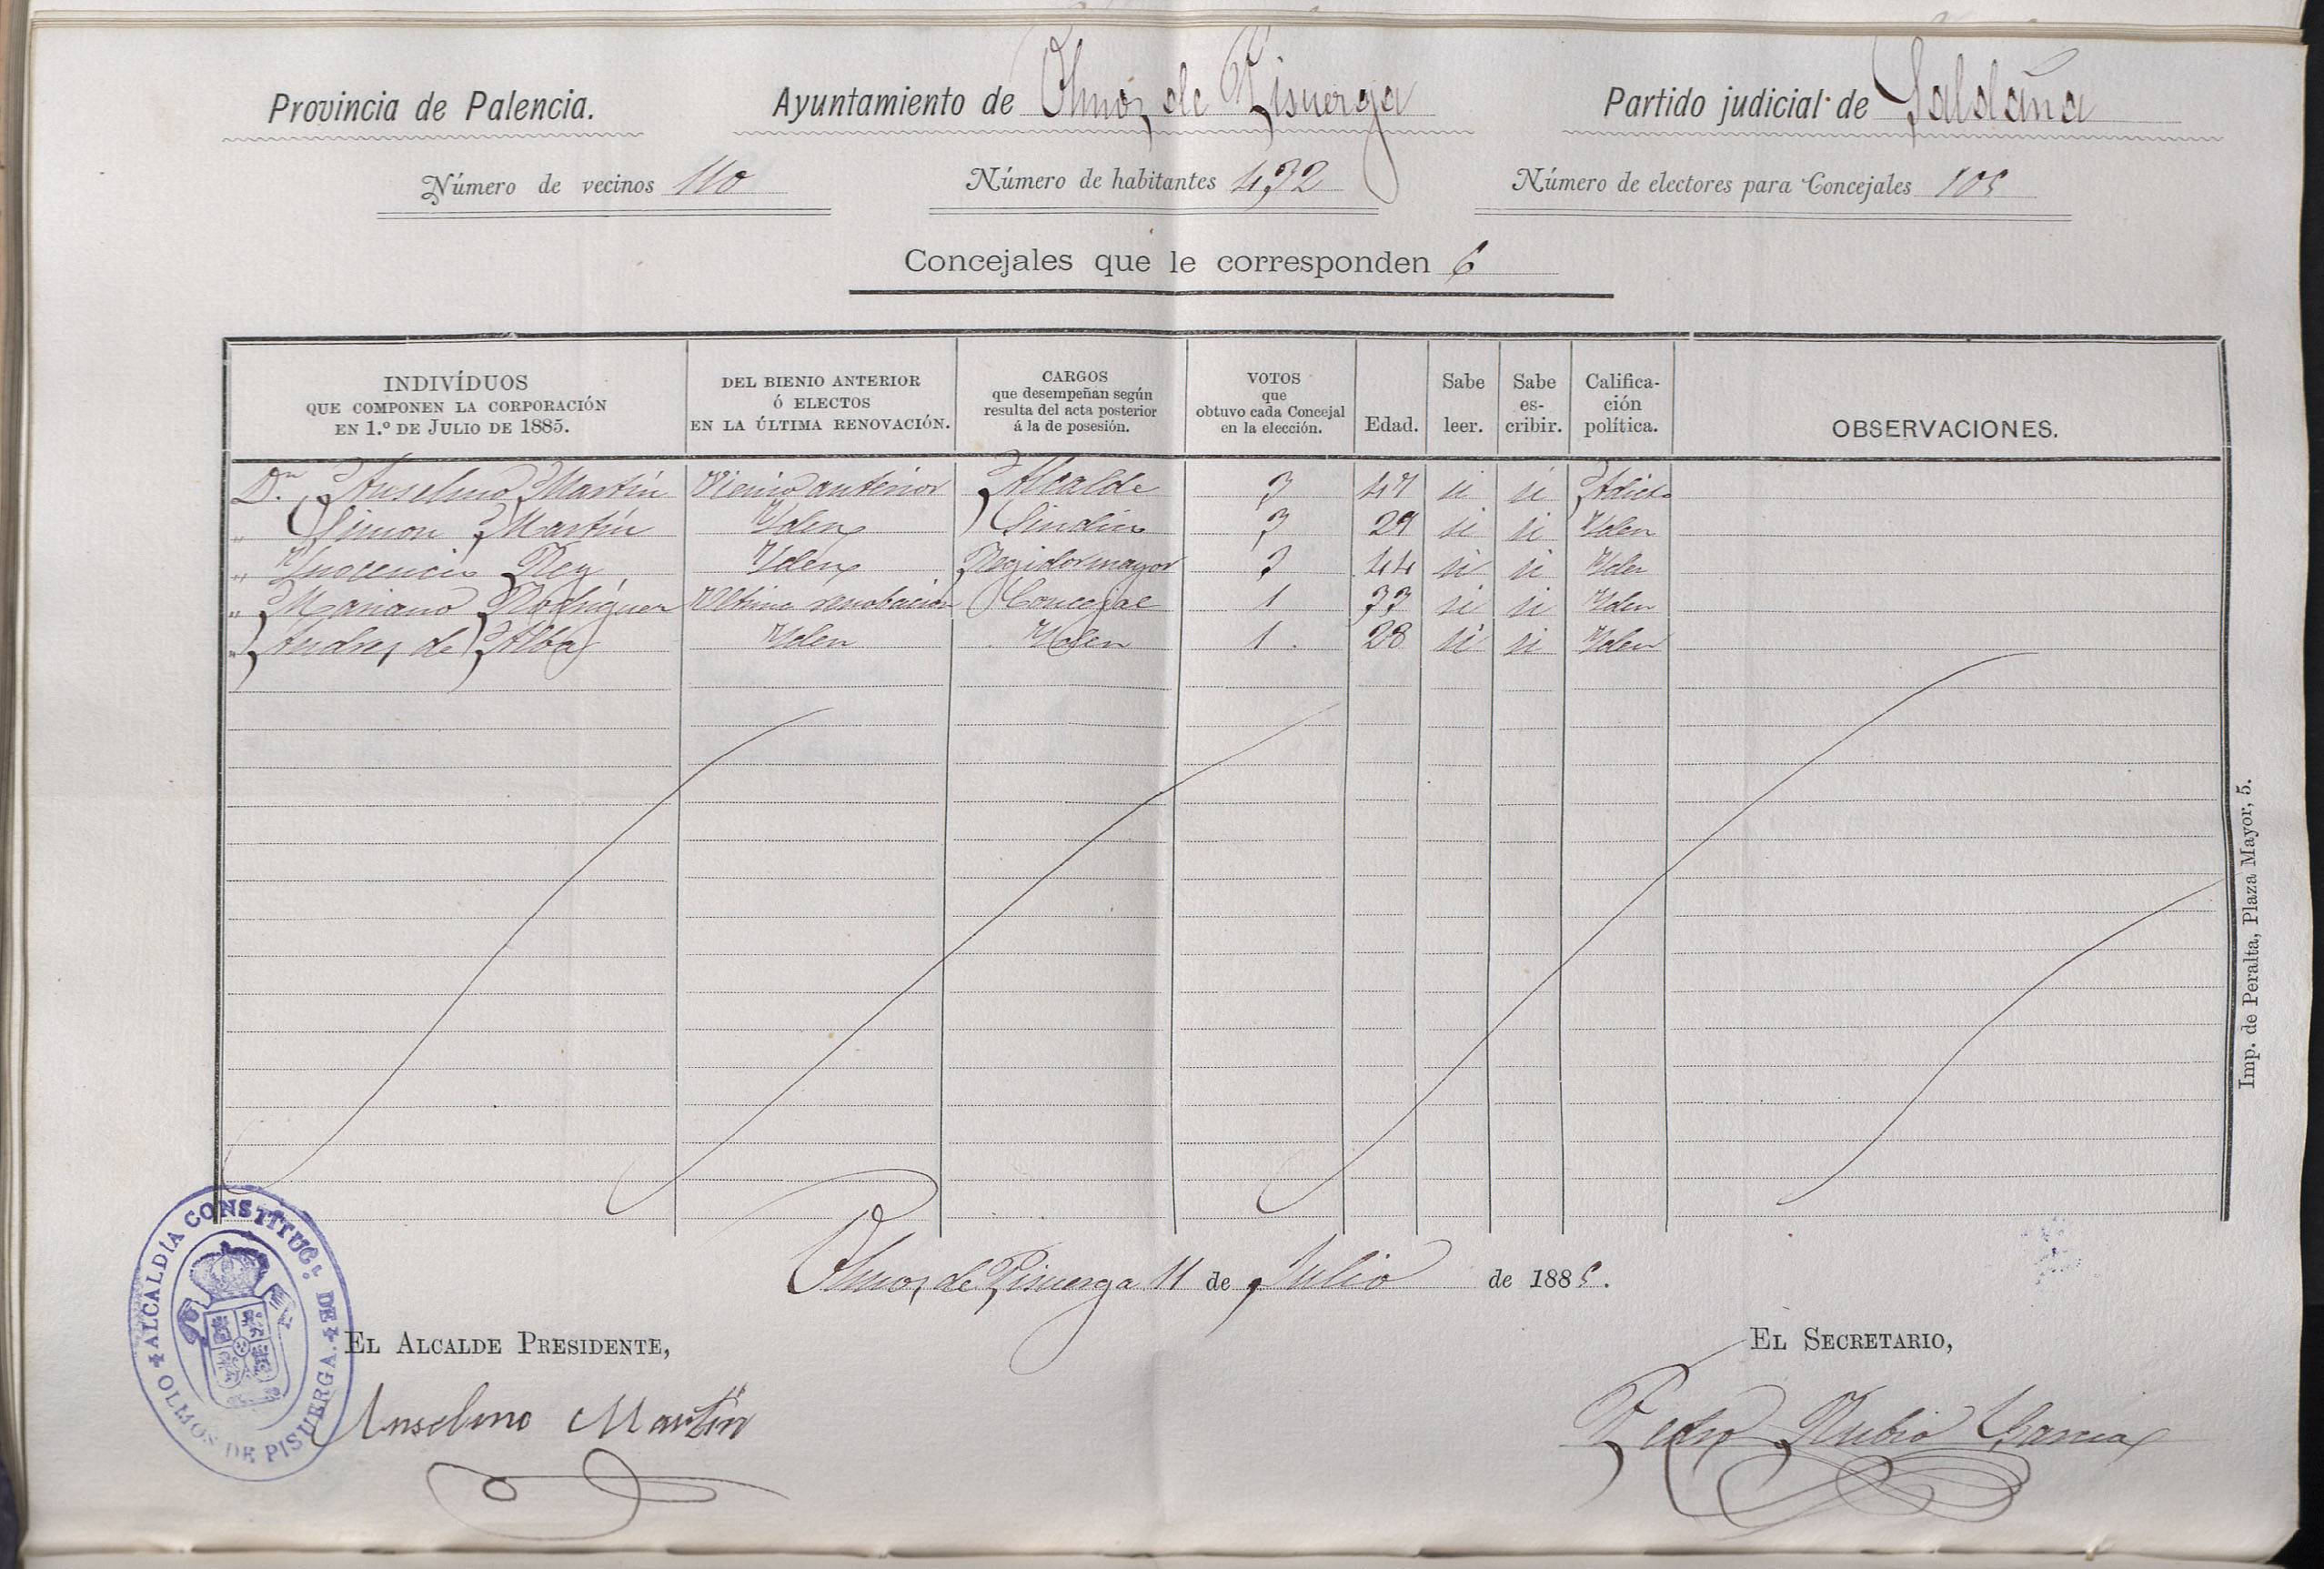 Provincia de Palencia. Ayuntamiento de Olmos de Pisuerga Partido judicial de Saldaña
Número de vecinos 110 Número de habitantes 432 Número de electores para Concejales 105
Concejales que le corresponden 6
INDIVÍDUOS QUE COMPONEN LA CORPORACIÓN EN 1.º DE JULIO DE 1885. DEL BIENIO ANTERIOR Ó ELECTOS EN LA ÚLTIMA RENOVACIÓN. CARGOS que desempeñan según resulta del acta posterior á la de posesión. VOTOS que obtuvo cada Concejal en la elección. Edad. Sabe leer. Sabe es-cribir. Califica-ción política. OBSERVACIONES.
D.n Anselmo Martín Vienio anterior Alcalde 3 47 si si Adicto
" Simon Martín Yden Sindico 3 29 si si Yden
" Ynocencio Rey Yden Regidor mayor 3 44 si si Yden
" Mariano Rodriguez Ultima renobacion Concejal 1 33 si si Yden
" Andres de Alba Yden Yden 1. 28 si si Yden
Olmos de Pisuerga 11 de Julio de 1885.
EL ALCALDE PRESIDENTE, EL SECRETARIO,
Anselmo Martín Pedro Rubio Garcia
ALCALDÍA CONSTITUC.L DE OLMOS DE PISUERGA.
Imp. de Peralta, Plaza Mayor, 5.